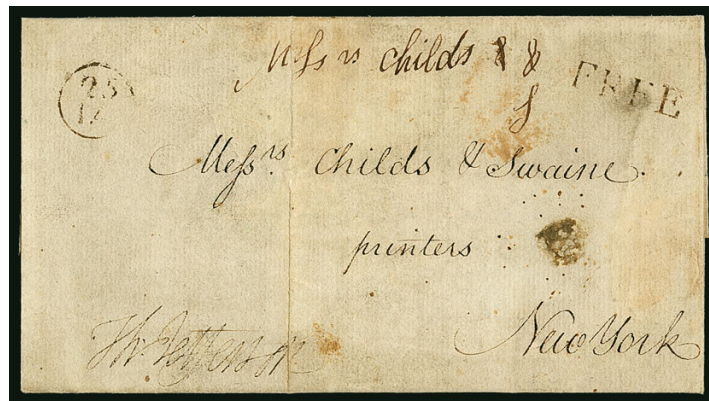 Messrs childs & &
S
FREE
25
Messrs. Childs & Swaine.
printers
New York
Th: Jefferson